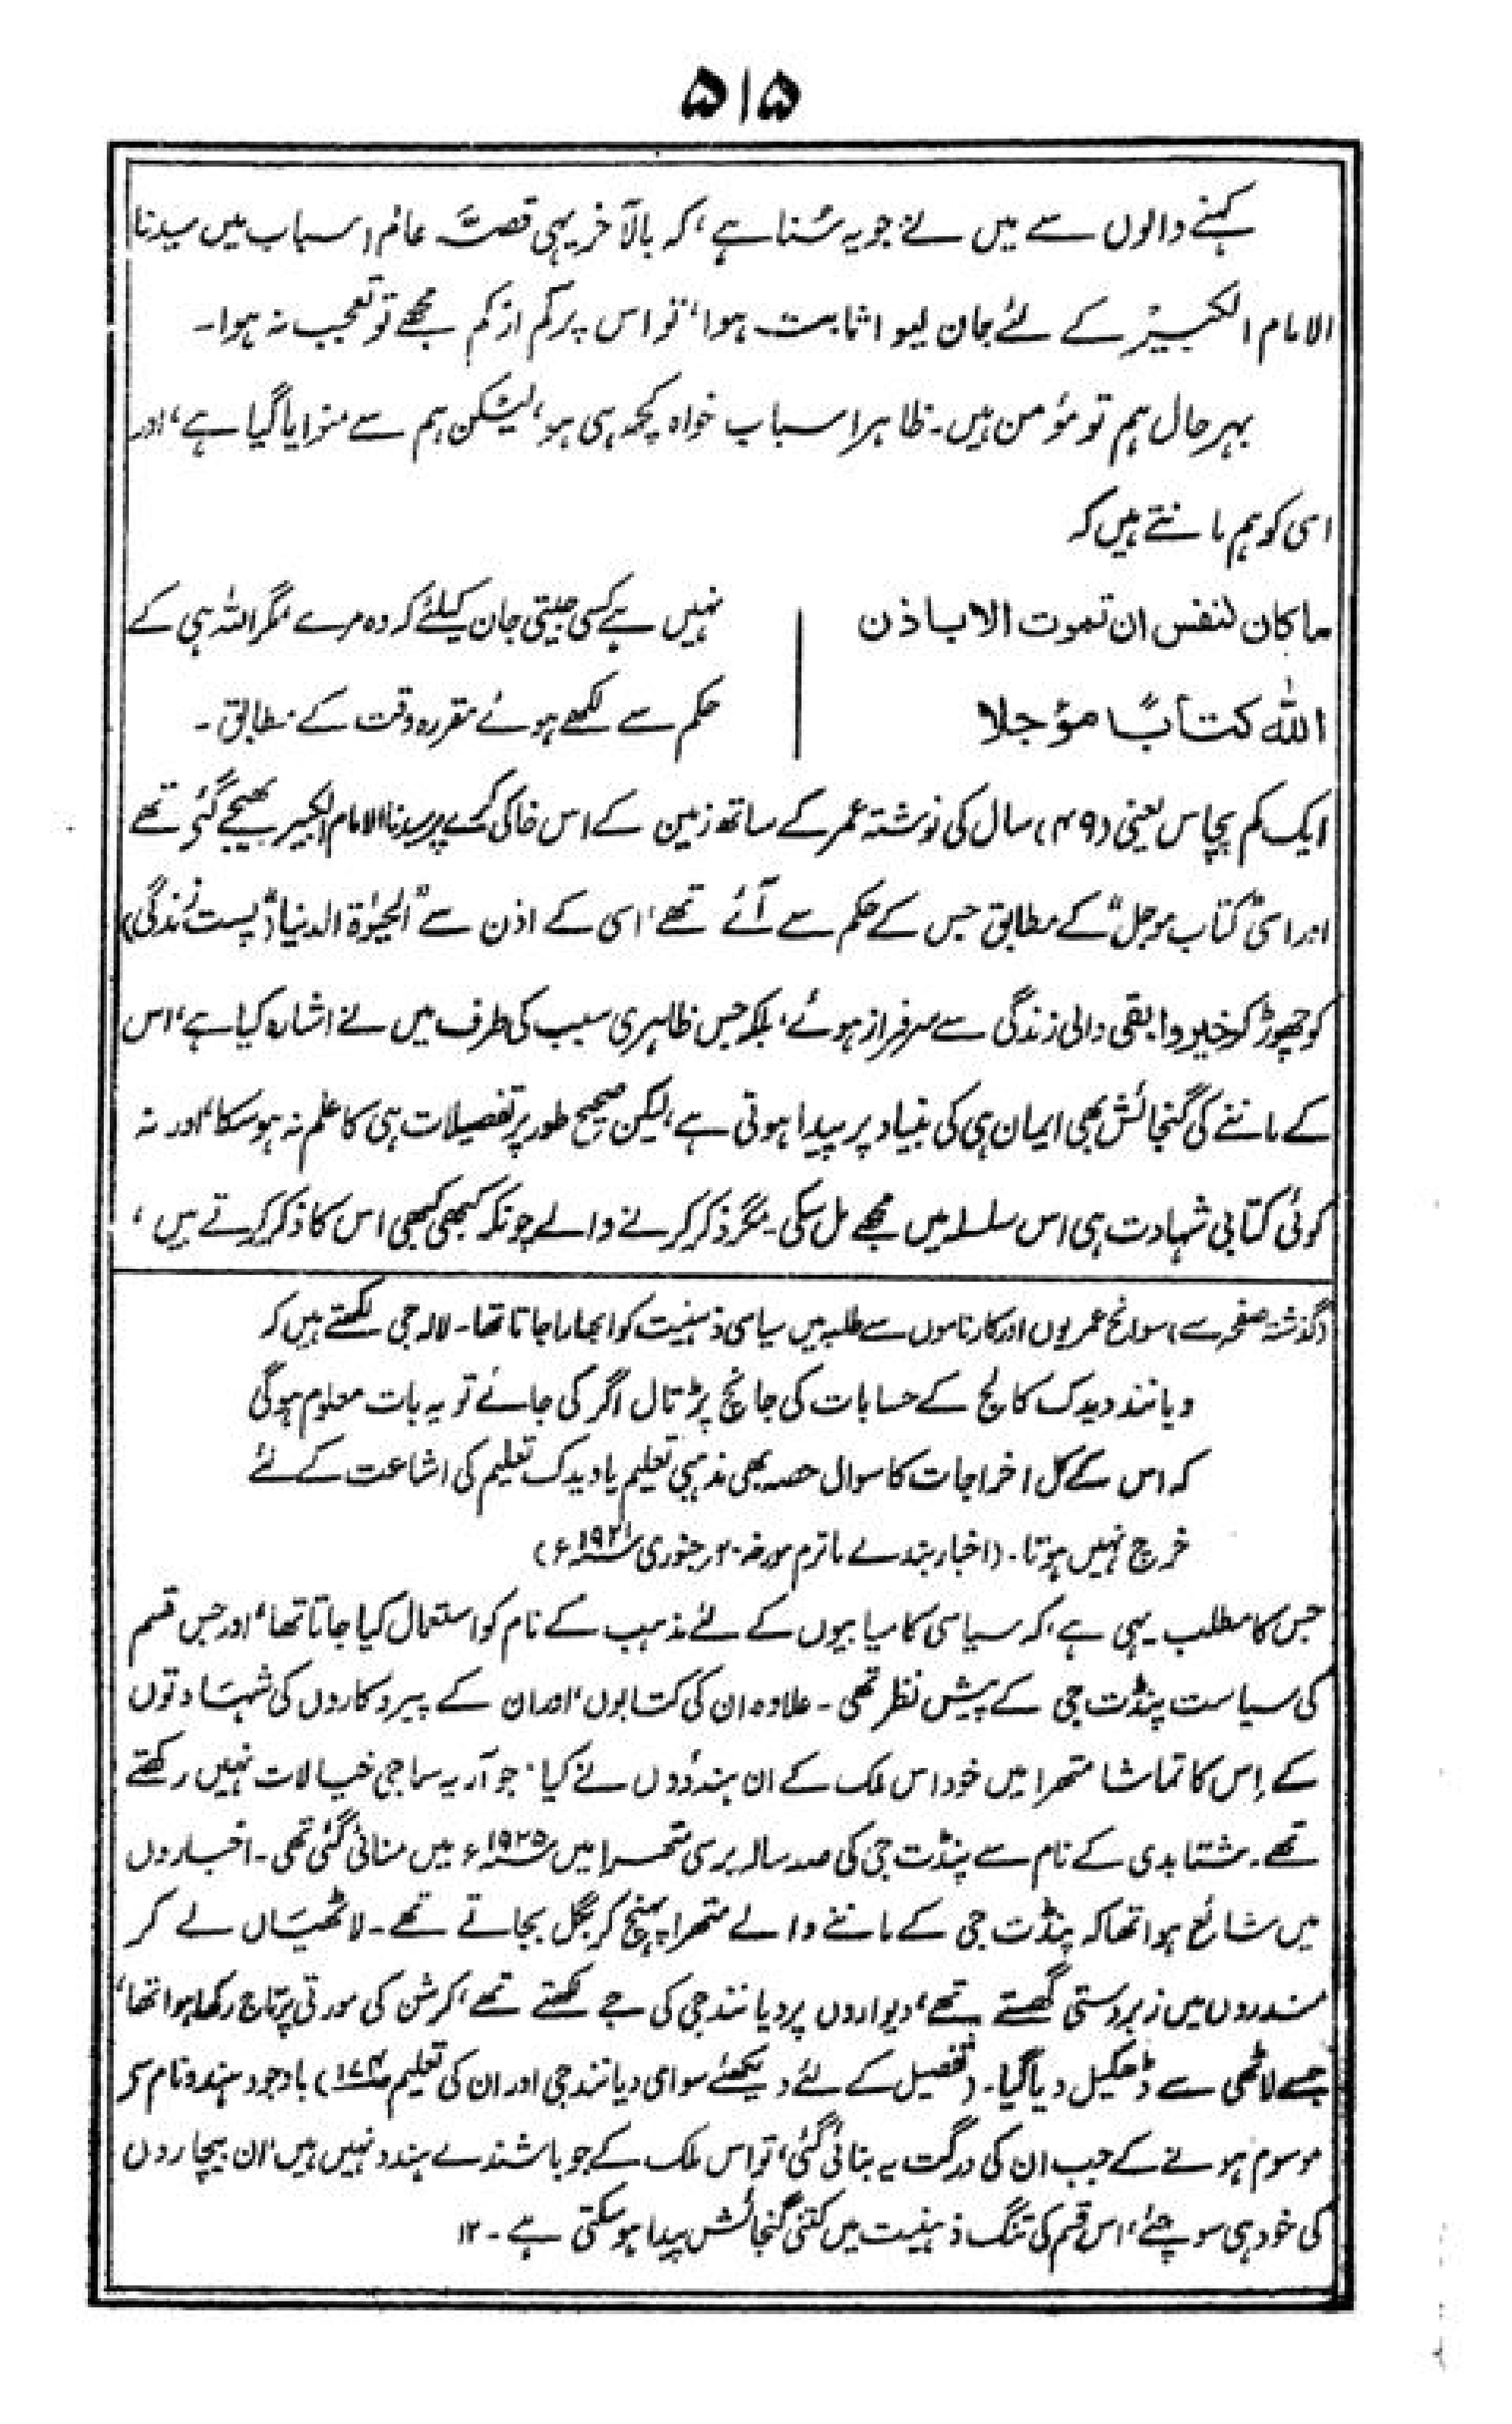 ۵۱۵
کہنے والوں سے میں نے جو یہ سُنا ہے، کہ بالآخر یہی قصتّہ عالم اسباب میں سیدنا
الامام الکبیرؒ کے لئے جان لیوا ثابت ہوا، تو اس پر کم از کم مجھے تو تعجب نہ ہوا۔
بہرحال ہم تو مؤمن ہیں۔ ظاہر اسباب خواہ کچھ ہی ہو، لیکن ہم سے منوایا گیا ہے، اور
اسی کو ہم مانتے ہیں کہ
ماکان لنفس ان تموت الا باذن
اللہ کتابًا مؤجلا
نہیں ہے کسی جیتی جان کیلئے کہ وہ مرے مگر اللہ ہی کے
حکم سے لکھے ہوئے مقررہ وقت کے مطابق۔
ایک کم پچاس یعنی (۴۹) سال کی نوشتہ عمر کے ساتھ زمین کے اس خاکی کُرے پر سیدنا الامام الکبیر بھیجے گئے تھے
اور اسی "کتاب موجل" کے مطابق جس کے حکم سے آئے تھے، اسی کے اذن سے "الحیٰوۃ الدنیا" (پست زندگی)
کو چھوڑ کر خیر و ابقی والی زندگی سے سرفراز ہوئے، بلکہ جس ظاہری سبب کی طرف میں نے اشارہ کیا ہے، اس
کے ماننے کی گنجائش بھی ایمان ہی کی بنیاد پر پیدا ہوتی ہے، لیکن صحیح طور پر تفصیلات ہی کا علم نہ ہوسکا، اور نہ
کوئی کتابی شہادت ہی اس سلسلہ میں مجھے مل سکی۔ مگر ذکر کرنے والے چونکہ کبھی کبھی اس کا ذکر کرتے ہیں،
(گذشتہ صفحہ سے) سوانح عمریوں اور کارناموں سے طلبہ میں سیاسی ذہنیت کو ابھارا جاتا تھا۔ لالہ جی لکھتے ہیں کہ
دیانند ویدک کالج کے حسابات کی جانچ پڑتال اگر کی جائے تو یہ بات معلوم ہوگی
کہ اس کے کل اخراجات کا سواں حصہ بھی مذہبی تعلیم یا ویدک تعلیم کی اشاعت کے لئے
خرچ نہیں ہوتا۔ (اخبار بندے ماترم مورخہ ۲۰ر جنوری ۱۹۲۱ء)
جس کا مطلب یہی ہے، کہ سیاسی کامیابیوں کے لئے مذہب کے نام کو استعمال کیا جاتا تھا، اور جس قسم
کی سیاست پنڈت جی کے پیش نظر تھی۔ علاوہ ان کی کتابوں، اور ان کے پیروکاروں کی شہادتوں
کے اِس کا تماشا متھرا میں خود اس ملک کے ان ہندوؤں نے کیا، جو آریہ سماجی خیالات نہیں رکھتے
تھے۔ شتابدی کے نام سے پنڈت جی کی صد سالہ برسی متھرا میں ۱۹۲۵ء میں منائی گئی تھی۔ اخباروں
میں شائع ہوا تھا کہ پنڈت جی کے ماننے والے متھرا پہنچ کر بگل بجاتے تھے۔ لاٹھیاں لے کر
مندروں میں زبردستی گھستے تھے، دیواروں پر دیانند جی کی جے لکھتے تھے، کرشن کی مورتی پر تاج رکھا ہوا تھا،
جسے لاٹھی سے ڈھکیل دیا گیا۔ (تفصیل کے لئے دیکھئے سوامی دیانند جی اور ان کی تعلیم) باوجود ہندو نام سے
موسوم ہونے کے جب ان کی درگت یہ بنائی گئی، تو اس ملک کے جو باشندے ہندو نہیں ہیں، ان بیچاروں
کی خود ہی سوچئے، اس قسم کی تنگ ذہنیت میں کتنی گنجائش پیدا ہوسکتی ہے۔ ۱۲